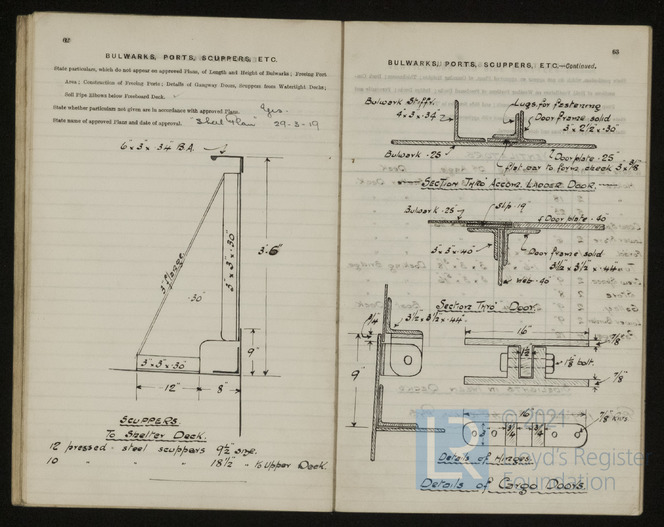 62
BULWARKS, PORTS, SCUPPERS, ETC.
State particulars, which do not appear on approved Plans, of Length and Height of Bulwarks; Freeing Port
Area; Construction of Freeing Ports; Details of Gangway Doors, Scuppers from Watertight Decks;
Soil Pipe Elbows below Freeboard Deck.
State whether particulars not given are in accordance with approved Plans. Yes.
State name of approved Plans and date of approval. "Shell Plan" 29-3-19
6" x 3" x .34" B.A.
3'-6"
3" flange
.30"
3" x 3" x .30"
9"
3" x 3" x .30"
12"
8"
SCUPPERS.
To Shelter Deck.
12 pressed - steel scuppers 9½" size.
10 " " " 18½" " to Upper Deck.
63
BULWARKS, PORTS, SCUPPERS, ETC.—Continued.
Bulwark Stiffr.
4 x 3 x .34"
Lugs for fastening
Door frame solid
3" x 2½" x .30"
Bulwark .25"
Door plate .25"
flat bar to form check 3" x 3/8
SECTION THRO' ACCOM. LADDER DOOR.
Slip .19"
Bulwark .25"
Door plate .40"
3" x 3" x .40"
Door frame solid
3½" x 3½" x .44"
Web .40"
Section Thro' Door.
3½" x 3½" x .44"
16"
7/8"
1½"
1⅛ bolt.
9"
7/8"
16"
3¼
3¼
Details of Hinges.
Details of Cargo Doors.
© 2021
LR
Lloyd's Register
Foundation